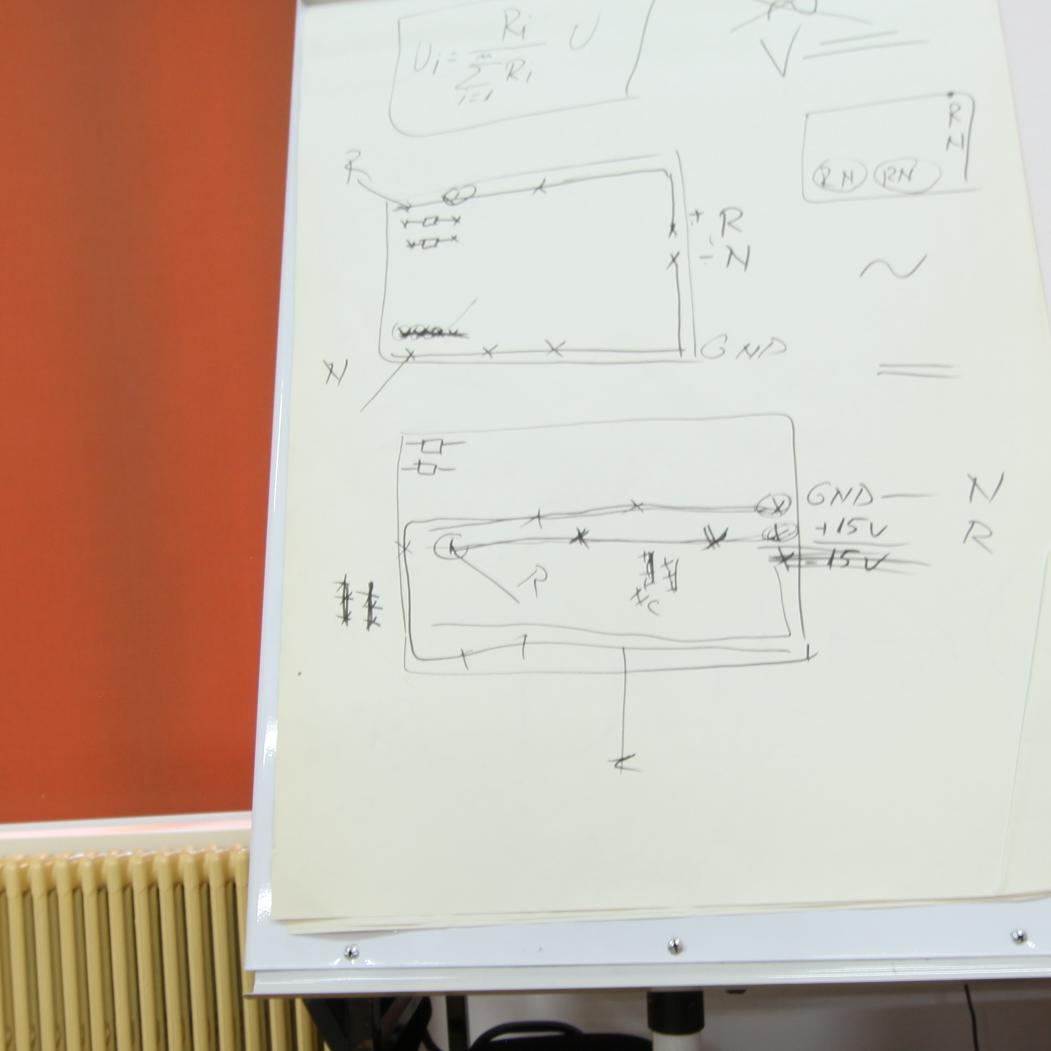 Uᵢ = Rᵢ / ∑ⁿᵢ₌₁ Rᵢ U
R
N
RN RN
R
+ R
- N
GND
N
GND — N
+15V R
-15V
R
C